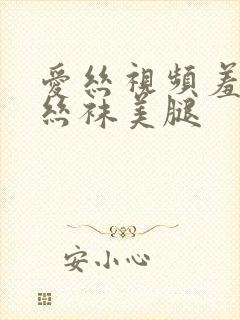 愛絲視頻羞
絲袜美腿
安小心